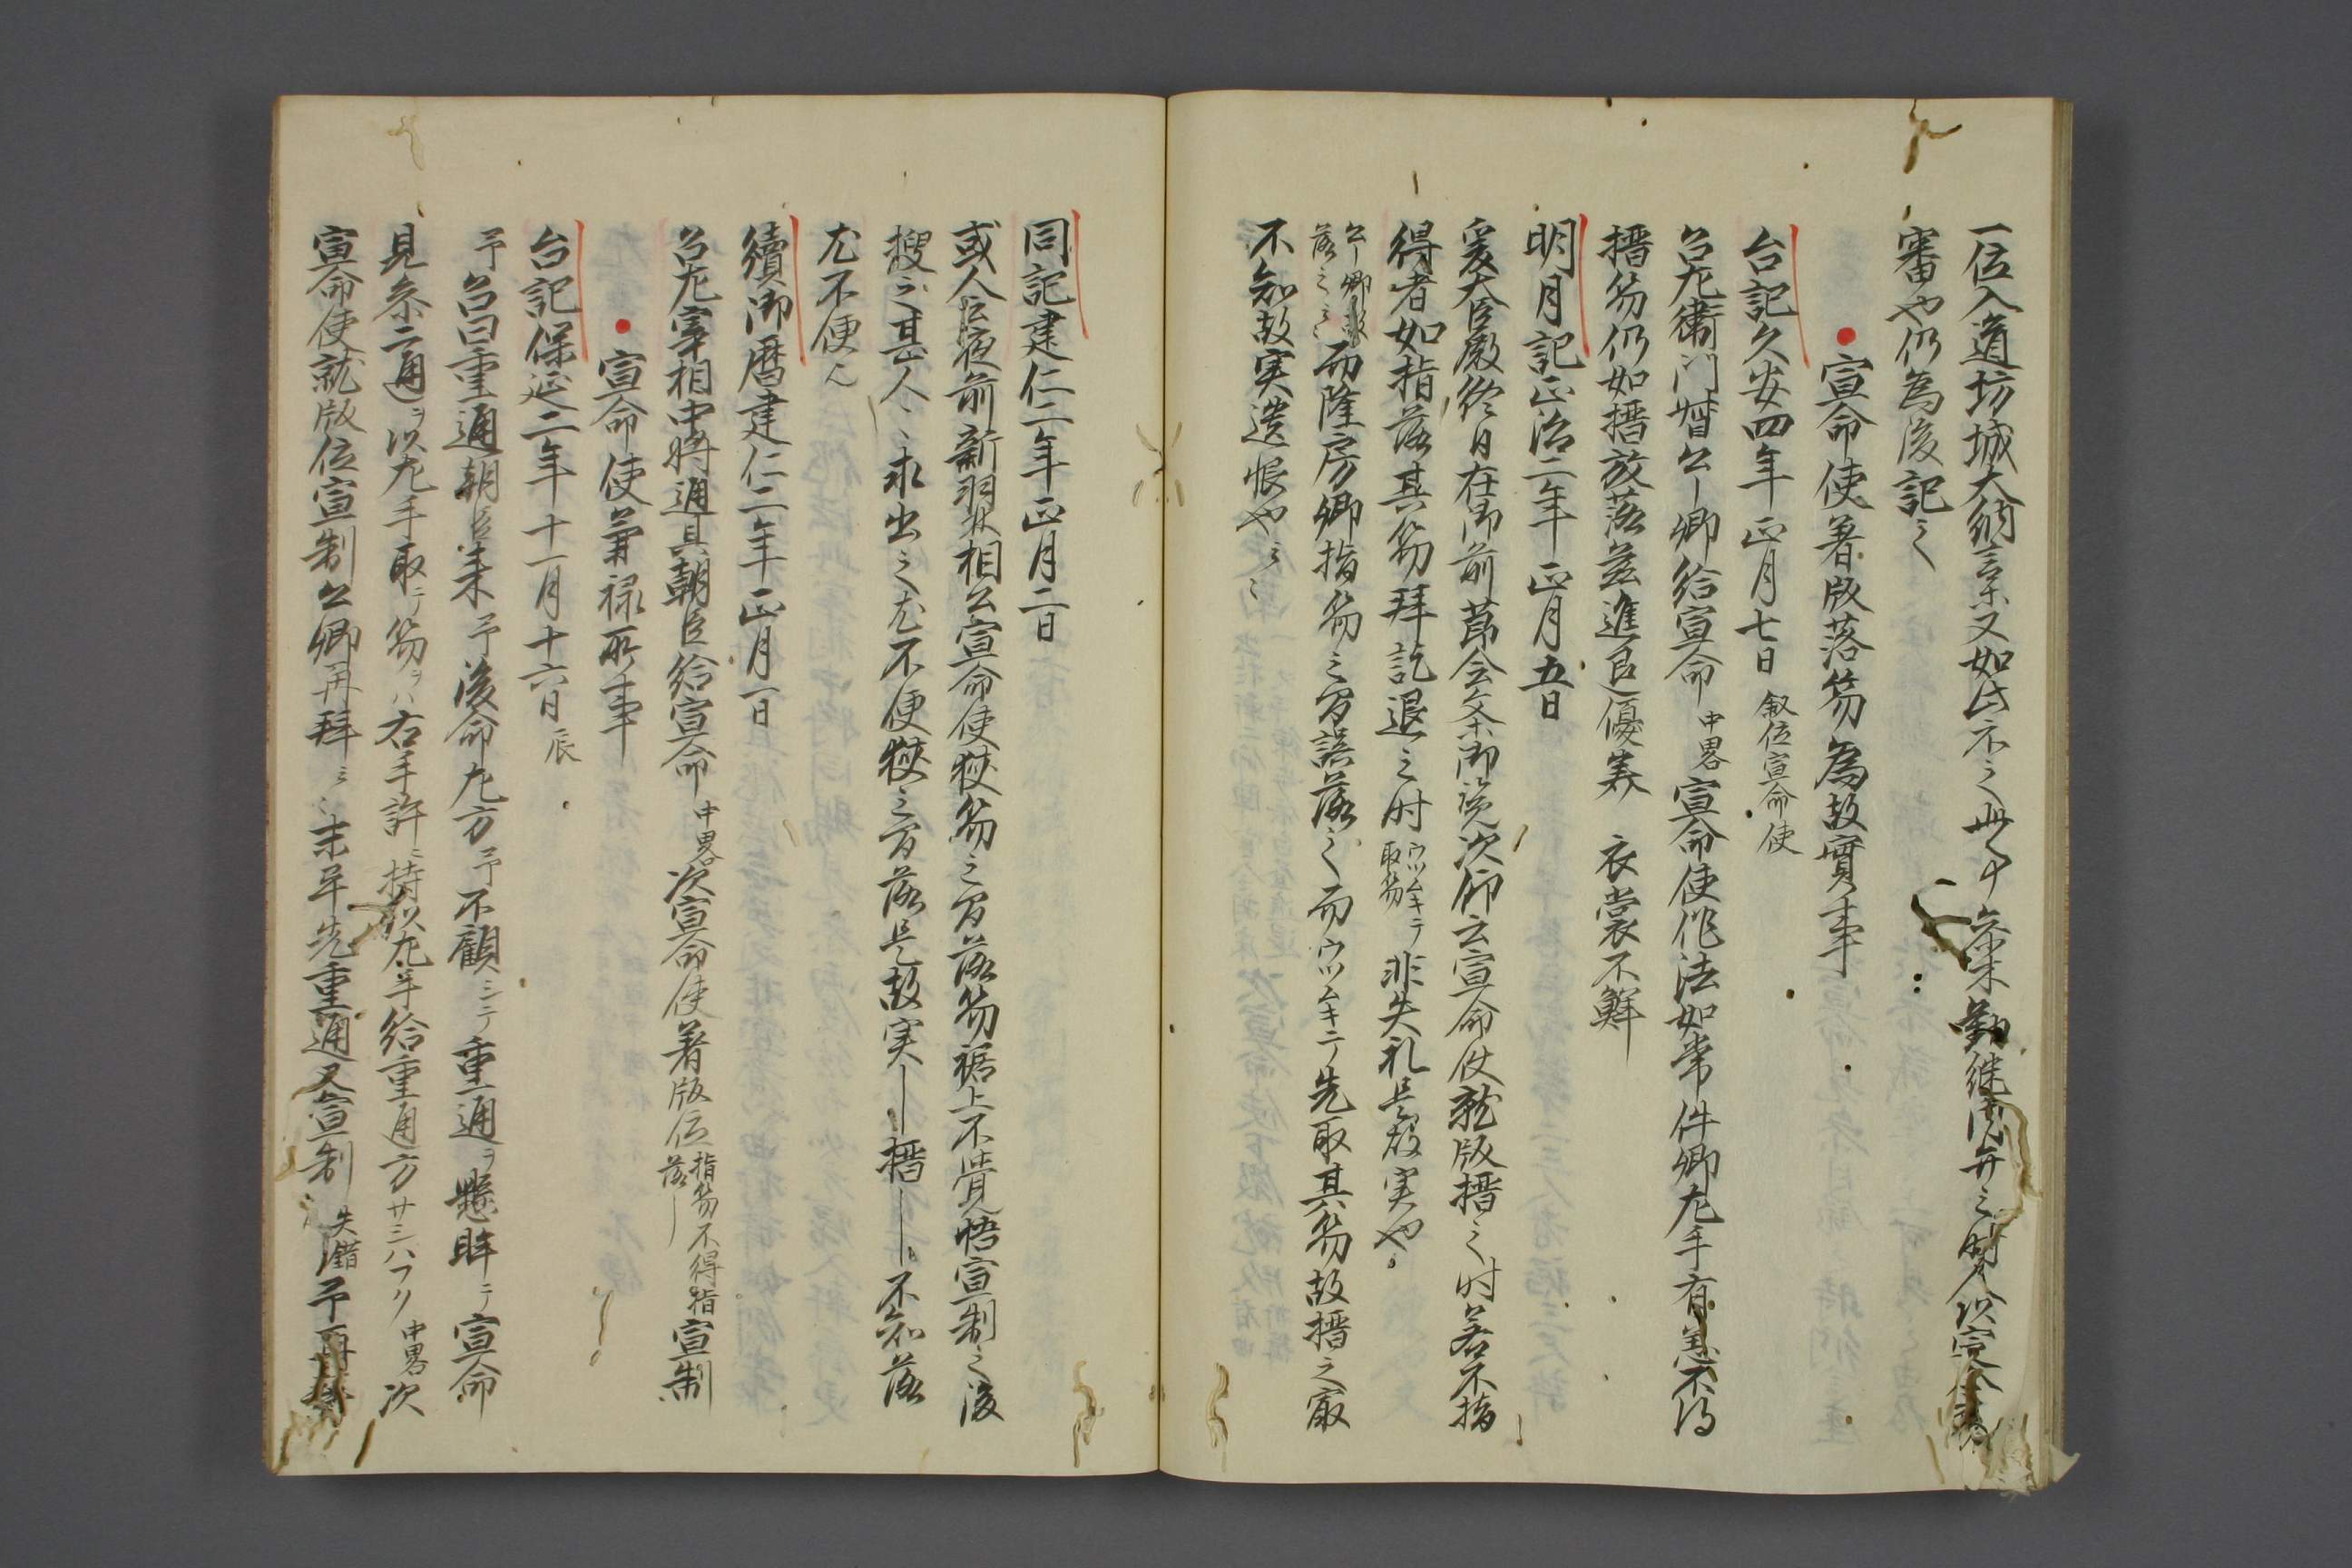 一位入道坊城大納言又如此示之此条勤仕
審也仍為後記之
宣命使著版落笏為故實事
台記久安四年正月七日 叙位宣命使
召左衛門督公卿給宣命 中畧 宣命使作法如常件卿左手有恙不得
搢笏仍如搢放落茲進退優美 衣裳不鮮
明月記正治二年正月五日
爰大臣殿終日在御前節会条御説次仰云宣命使就版搢之時若不指
得者如指落其笏拜訖退之時 ウツムキテ取笏 非失礼是故実也
公卿 落之云 而隆房卿指笏之間誤落之而ウツムキテ先取其笏故搢之寂
不知故実遺恨也云々
同記建仁二年正月二日
或人云夜前新羽林相公宣命使挾笏之間落笏裾上不覚悟宣制之後
搜之甚人々求出之尤不便挾之間落是故実——搢——不知落
尤不便々
續御暦建仁二年正月一日
召左宰相中将通具朝臣給宣命 中畧 次宣命使著版位 指笏不得指落— 宣制
宣命使兼禄所事
台記保延二年十一月十六日 辰
予召曰重通朝臣来予後命左方予不顧シテ重通ヲ懸眸テ宣命
見参二通ヲ以左手取テ笏ヲハ右手許ニ持以左手給重通方サニハフリ 中畧 次
宣命使就版位宣制公卿再拜云々未畢先重通又宣制 失錯 予再拜